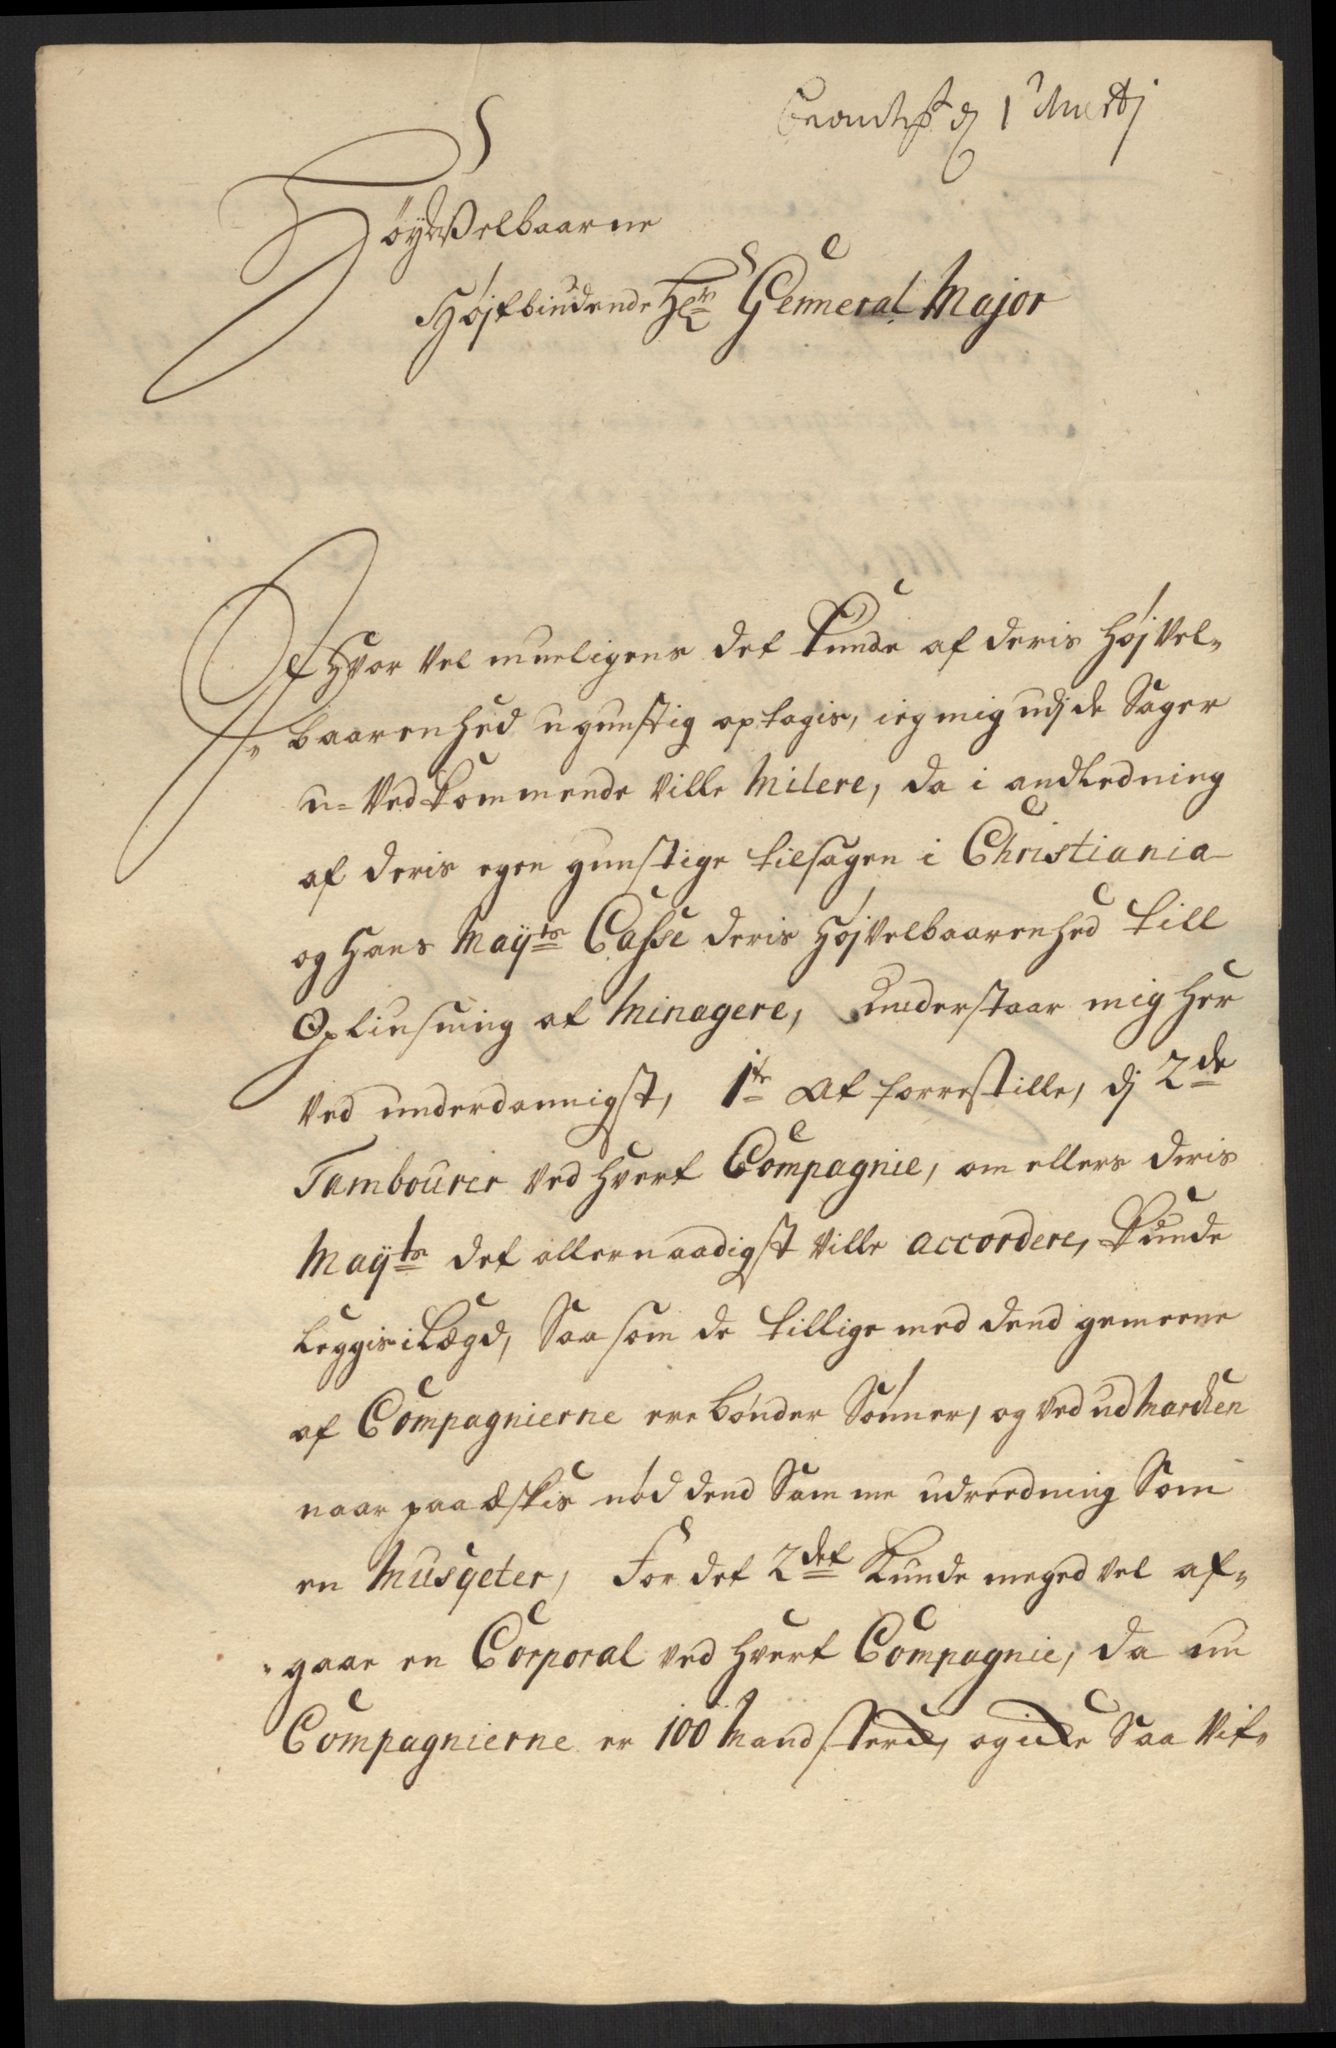 d 1 Martj
Höyædelbaarne
Højstbiudende Hr Genneral Major
Hvor vel mueligens det kunde af deris Højvel-
baarenhed ugunstig optagis, ieg mig udj de Sager
u-Vedkommende Ville Milere, da i andledning
af deris egen gunstige tilsagen i Christiania
og Hans Mayts Casse deris Højvelbaarenhed till
Opliusning at Minagere, Understaar mig her
Ved underdannigst, 1te At forrestille, dj 2de
Tambourer Ved Hvert Compagnie, om ellers deris
Mayts det allernaadigst Ville accordere, Kunde
Leggis i Lægd, Saa som de tillige med dend gemeene
af Compagnierne ere bønder Sønner, og Ved udMarchen
naar paaæskis nød dend Samme udreedning Som
en Musqeter, For det 2det Kunde meged vel af-
gaae en Corporal ved hvert Compagnie, da nu
Compagnierne er 100 Mand sterck, og icke Saa Vit-